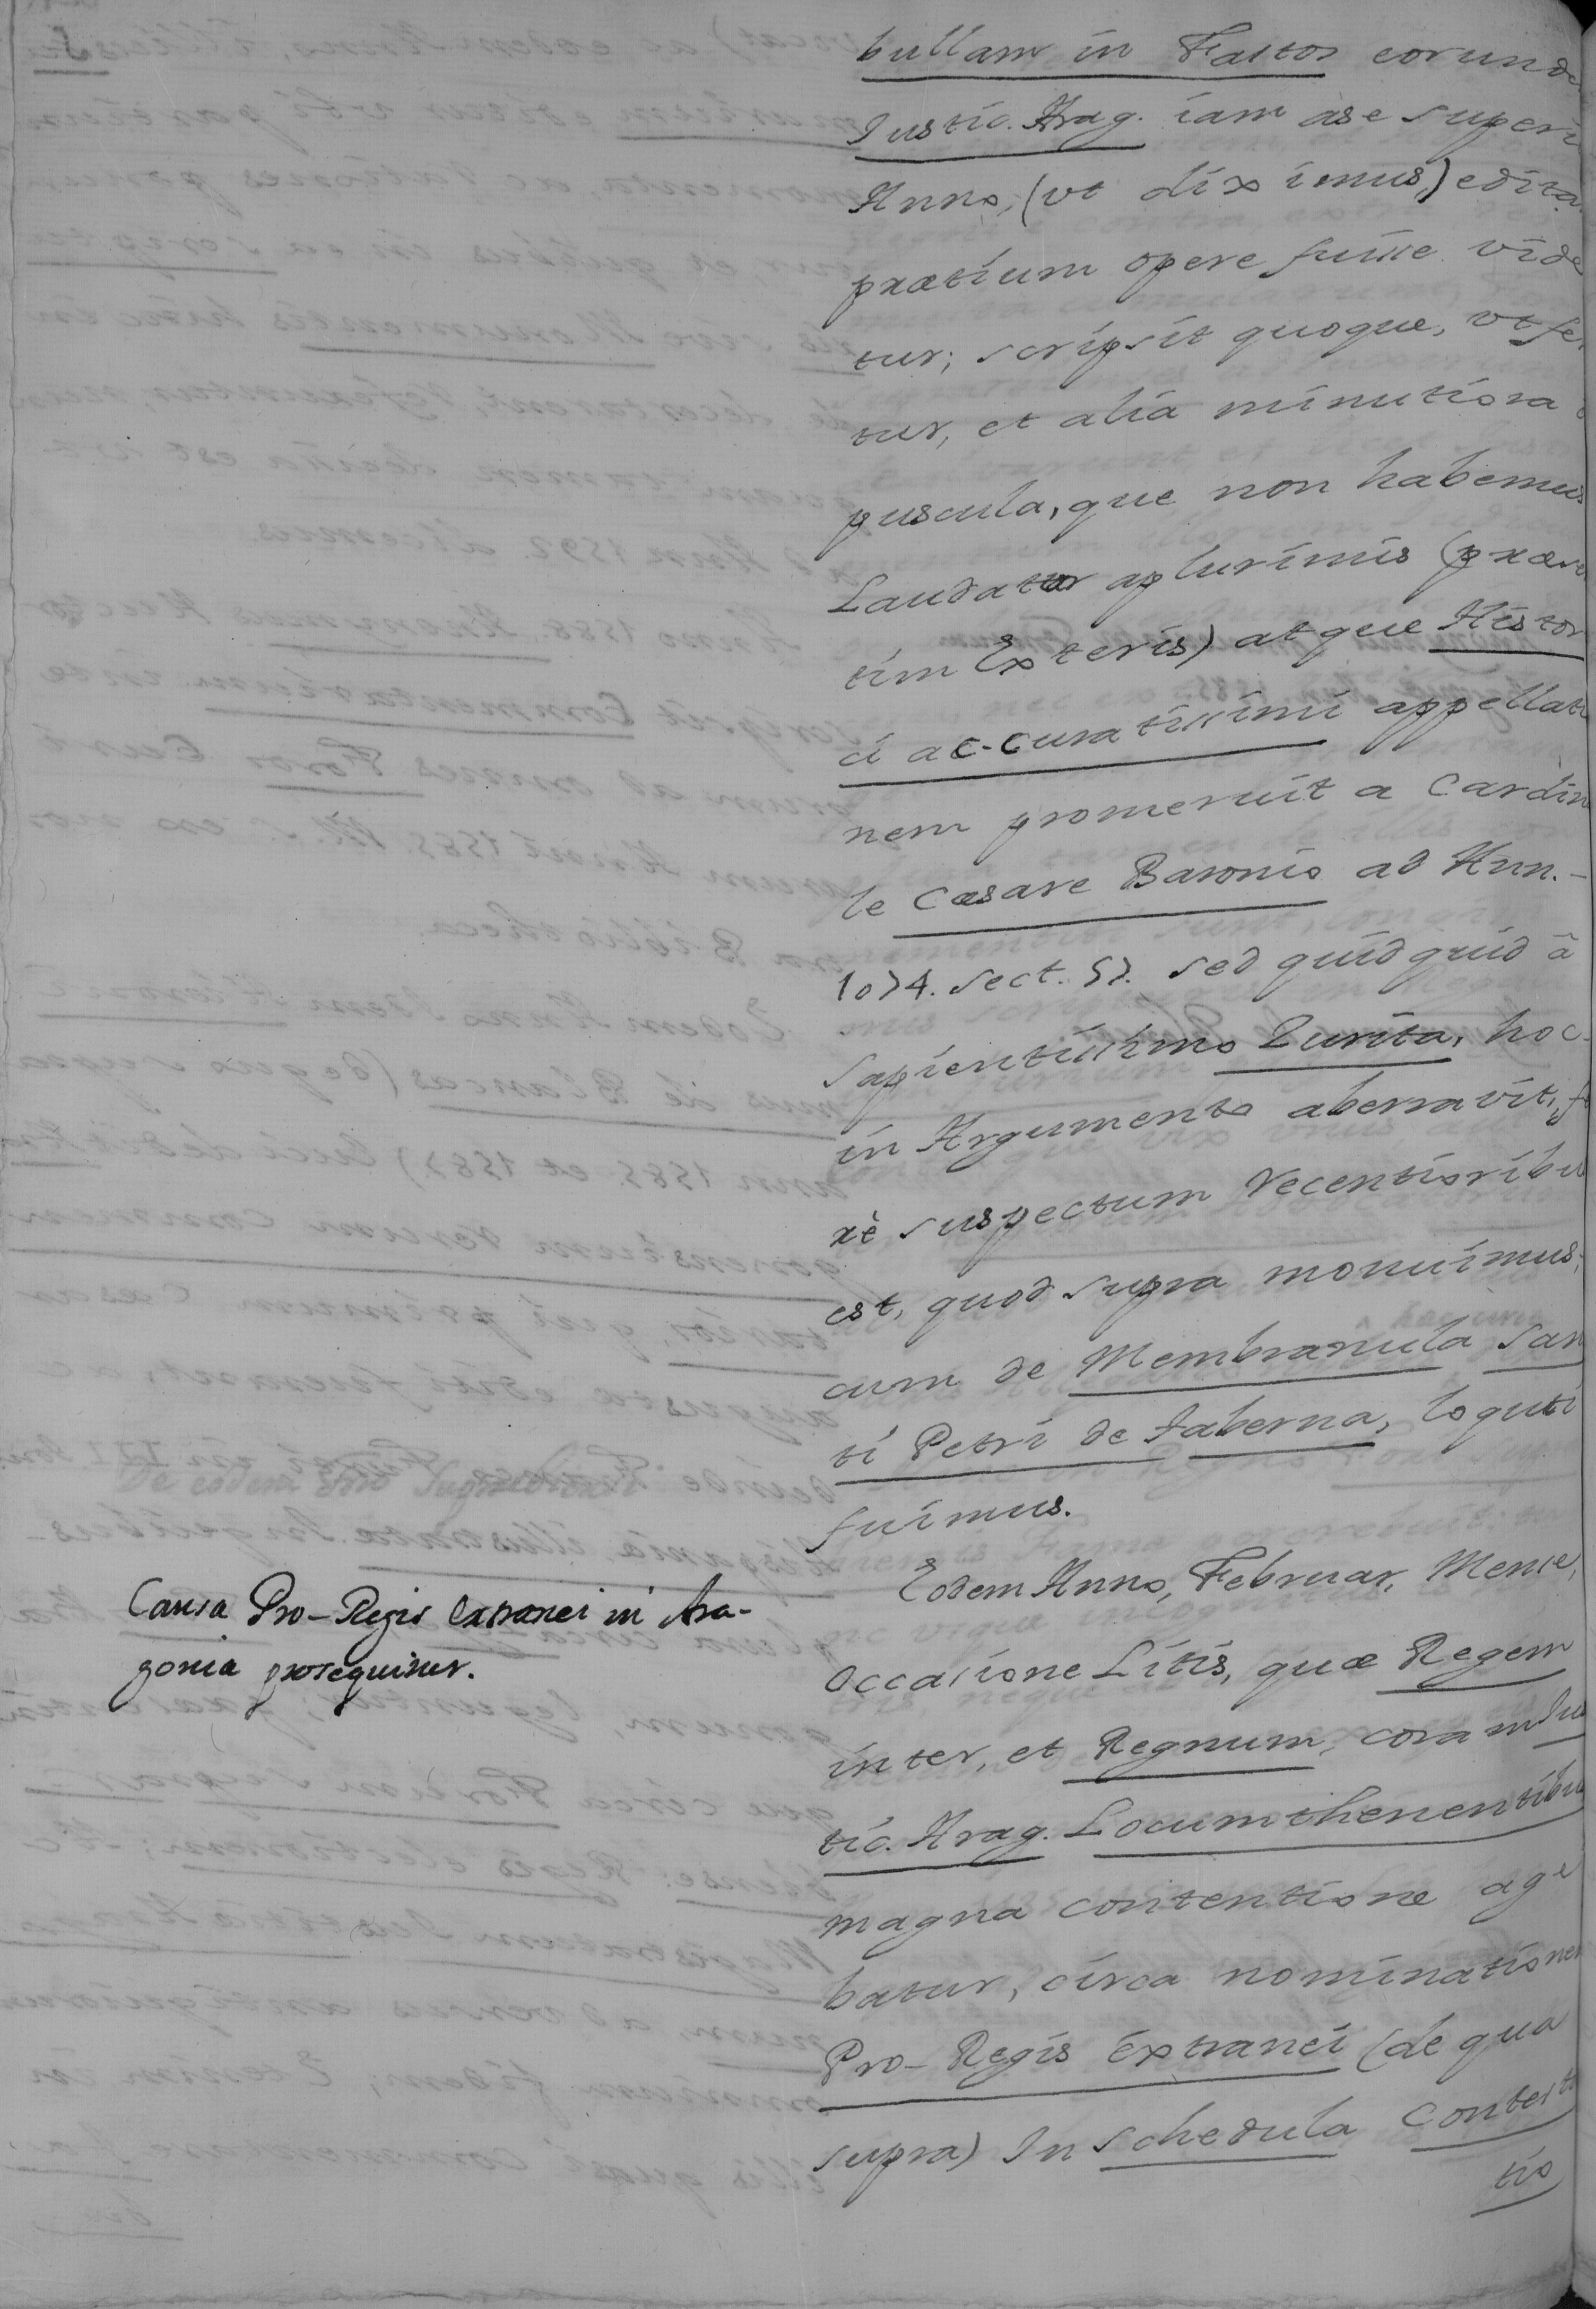 bullam in Fastos eorunde
Iustic. Arag. iam àse superi
Anno, (vt diximus,) edita
prætium opere fuisse vide
tur; scripsit quoque, vt fer
tur, et alia minutiora
puscula, que non habemus
Laudator aplurimis (præser
tim Exteris) atque Histor
ci ac-curatissimi appellati
nem promeruit a Cardin
le Cæsare Baronio ad Ann.-
1074. sect. 57. sed quidquid â
sapientissimo Zurita, hoc-
in Argumento aberravit, fe
rè suspectum recentioribu
est, quod supra monuimus;
cum de Membranula San
ti Petri de Taberna, loquti
fuimus.
Eodem Anno, Februar. Mense,
occasione Litis, quæ Regem
inter, et Regnum, coram Ius
tic. Arag. Locumthenentibu
magna contentione age
batur, circa nominationem
Pro-Regis Extranei (de qua
supra) In Schedula Contest
tio
Causa Pro-Regis Extranei in Ara-
gonia prosequitur.